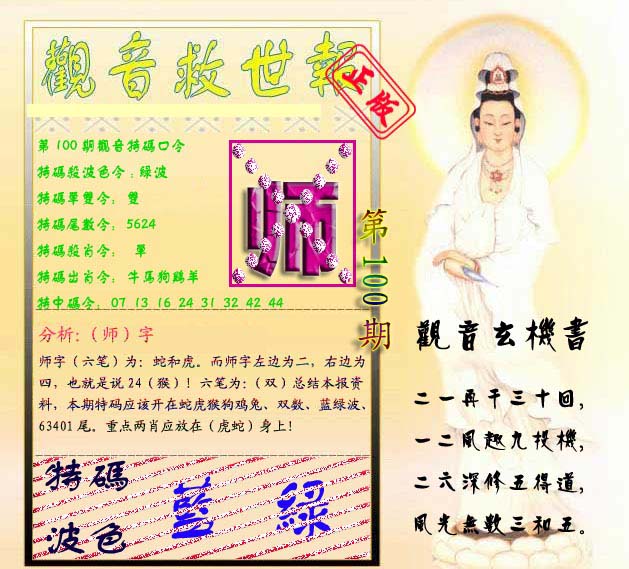 觀音救世報
正版
第100期觀音特碼口令
特碼殺波色令：綠波
特碼單雙令： 雙
特碼尾數令： 5624
特碼殺肖令： 單
特碼出肖令： 牛馬狗鷄羊
特中碼令： 07 13 16 24 31 32 42 44
师
第100期
分析：（师）字
师字（六笔）为：蛇和虎。而师字左边为二，右边为
四，也就是说24（猴）！六笔为：（双）总结本报资
料，本期特码应该开在蛇虎猴狗鸡兔、双数、蓝绿波、
63401尾。重点两肖应放在（虎蛇）身上！
特碼
波色
藍 綠
觀音玄機書
二一再干三十回，
一二風趣九投機，
二六深修五得道，
風光無數三和五。